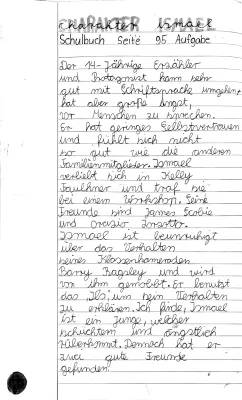 CHARAKTER ISMAEL
Schulbuch Seite 95 Aufgabe
Der 14-Jährige Erzähler
und Protagonist kann sehr
gut mit Schriftsprache umgehen,
hat aber große Angst,
vor Menschen zu sprechen.
Er hat geringes Selbstvertrauen
und fühlt sich nicht
so gut wie die anderen
Familienmitglieder. Ismael
verliebt sich in Kelly
Faulkner und traf sie
bei einem Workshop. Seine
Freunde sind James Scobie
und Orazio Zorotto.
Ismael ist beunruhigt
über das Verhalten
seines Klassenkameraden
Barry Bagsley und wird
vor ihm gemobbt. Er benutzt
das "ILS", um sein Verhalten
zu erklären. Ich finde, Ismael
ist ein Junge, welcher
schüchtern und ängstlich
rüberkommt. Dennoch hat er
zwei gute Freunde
gefunden.